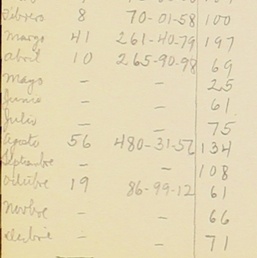 febrero 8 70-01-58 100
Marzo 41 261-40-79 197
abril 10 265-90-98 69
Mayo - - 25
Junio - - 61
Julio - - 75
agosto 56 480-31-56 134
Septembre - - 108
Octubre 19 86-99-12 61
Novbre - - 66
- - 71